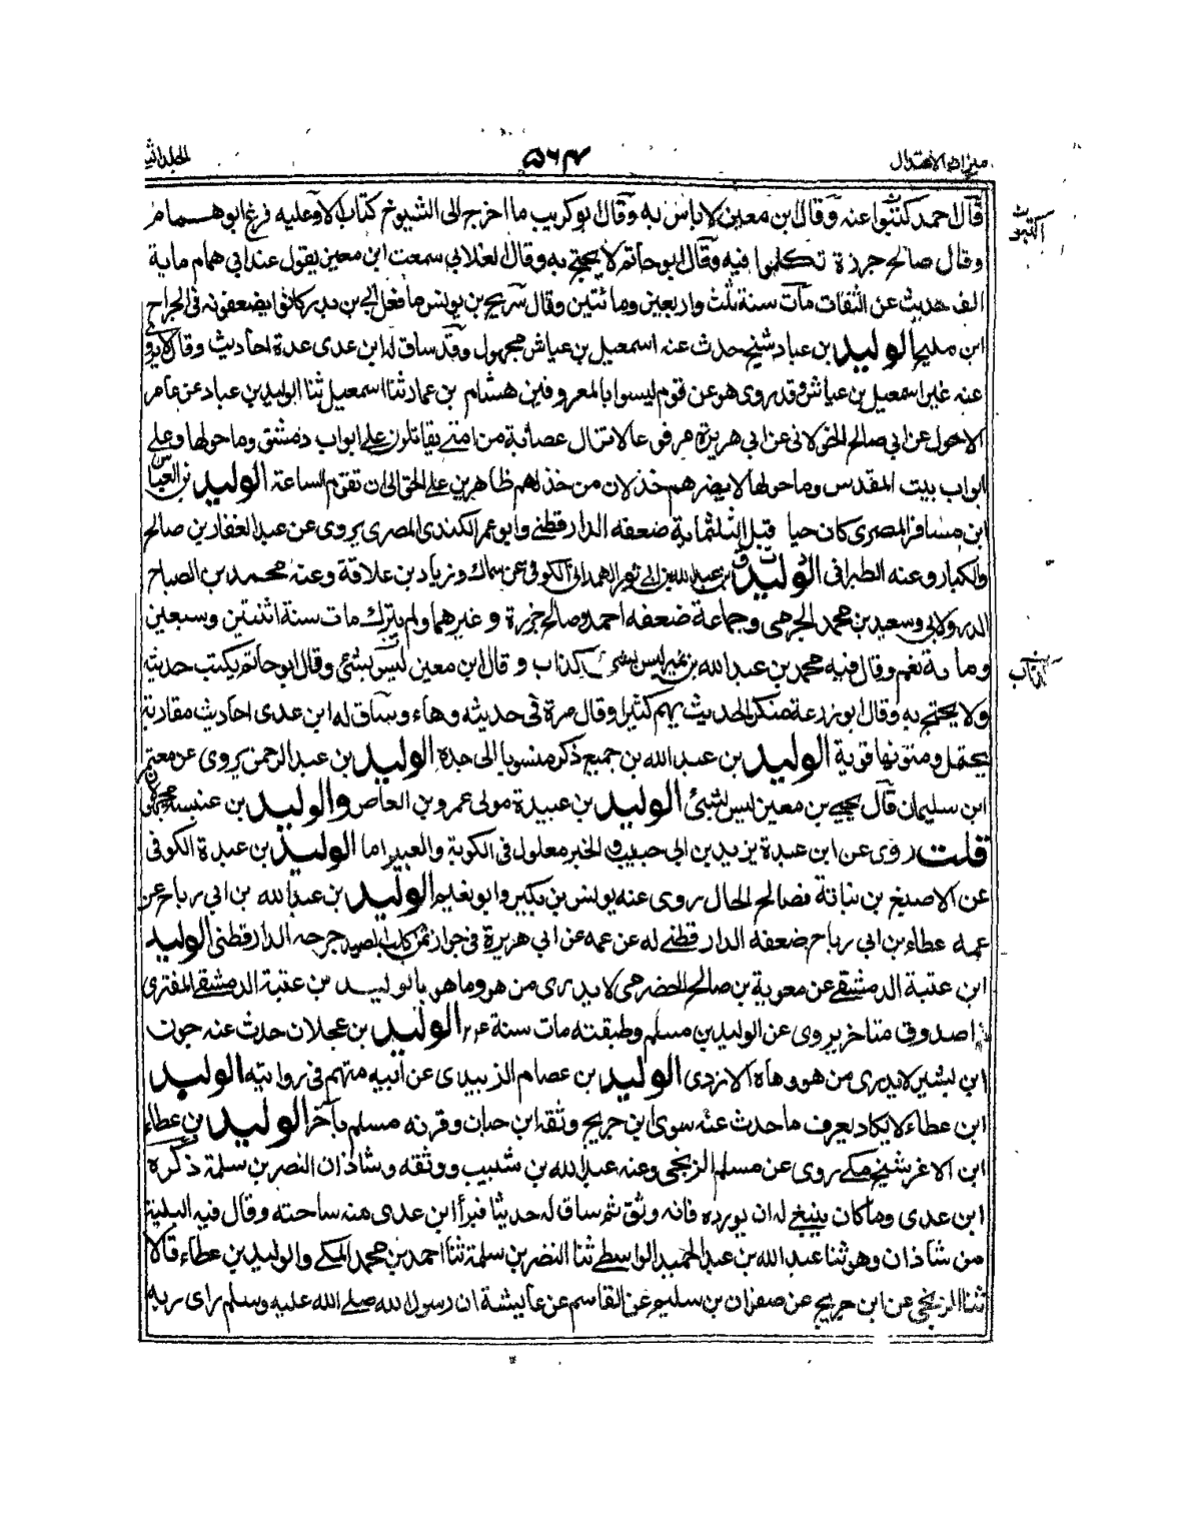 ميزان الاعتدال
۵۶۴
المجلد الثا
قال احمد كتبوا عنه وقال ابن معين لا باس به وقال ابو كريب ما اخرج الى الشيوخ كتاب الا وعليه فرغ ابو همام
وقال صالح جزرة تكلموا فيه وقال ابو حاتم لا يحتج به وقال الغلابي سمعت ابن معين يقول عند ابي همام ماية
الف حديث عن الثقات مات سنة ثلث واربعين ومائتين وقال سريج بن يونس ما فعل ابن بدر كانوا يضعفونه في الجراح
ابن مليح الوليد بن عباد شيخ حدث عنه اسمعيل بن عياش مجهول وقد ساق له ابن عدى عدة احاديث وقال لا يروى
عنه غير اسمعيل بن عياش وقد روى هو عن قوم ليسوا بالمعروفين هشام بن عمار ثنا اسمعيل ثنا الوليد بن عباد عن عامر
الاحول عن ابي صالح الخولاني عن ابي هريرة مرفوعا لا تزال عصابة من امتي يقاتلون على ابواب دمشق وما حولها وعلى
ابواب بيت المقدس وما حولها لا يضرهم خذلان من خذلهم ظاهرين على الحق الى ان تقوم الساعة الوليد بن العباس
ابن مسافر المصرى كان حيا قبل الثلثماية ضعفه الدارقطني وابو عمر الكندى المصرى يروى عن عبد الغفار بن صالح
والكبار وعنه الطبرانى الوليد بن عبد الله بن ابي ثور الهمدانى الكوفى عن سماك وزياد بن علاقة وعنه محمد بن الصباح
الدولابي وسعيد بن محمد الجرمى وجماعة ضعفه احمد وصالح جزرة وغيرهما ولم يترك مات سنة اثنتين وسبعين
وماية نعم وقال فيه محمد بن عبد الله بن نمير ليس بشئ كذاب وقال ابن معين ليس بشئ وقال ابو حاتم يكتب حديثه
ولا يحتج به وقال ابو زرعة منكر الحديث يهم كثيرا وقال مرة في حديثه وهاء وساق له ابن عدى احاديث مقاربة
يحتمل ومتونها قوية الوليد بن عبد الله بن جميع ذكر منسوبا الى جده الوليد بن عبد الرحمن يروى عن معتمر
ابن سليمان قال يحيى بن معين ليس بشئ الوليد بن عبيدة مولى عمرو بن العاص والوليد بن عنبسة مجهولان
قلت روى عن ابن عبدة يزيد بن ابى حبيب والخبر معلول فى الكوبة والغبيرا اما الوليد بن عبدة الكوفى
عن الاصبغ بن نباتة فصالح الحال روى عنه يونس بن بكير وابو نعيم الوليد بن عبد الله بن ابي رباح عن
عمه عطاء بن ابي رباح ضعفه الدارقطني له عن عمه عن ابي هريرة في جواز ثمن كلب الصيد جرحه الدارقطنى الوليد
ابن عتبة الدمشقي عن معوية بن صالح الحضرمي لا يدرى من هو وما هو بالوليد بن عتبة الدمشقى المقرى
صدوق متاخر يروى عن الوليد بن مسلم وطبقته مات سنة الوليد بن عجلان حدث عنه حوت
ابن بشير لا يدرى من هو وهاه الازدى الوليد بن عصام الزبيدى عن ابيه متهم في روايته الوليد
ابن عطاء لا يكاد يعرف ما حدث عنه سوى ابن جريج وثقه ابن حبان وقرنه مسلم بآخر الوليد بن عطاء
ابن الاغر شيخ مكي روى عن مسلم الزنجي وعنه عبد الله بن شبيب ووثقه وشاذان النضر بن سلمة ذكره
ابن عدى وما كان ينبغي له ان يورده فانه وثق ثم ساق له حديثا فبرأ ابن عدى منه ساحته وقال فيه البلية
من شاذان وهو ثنا عبد الله بن عبد الحميد الواسطي ثنا النضر بن سلمة ثنا احمد بن محمد المكي والوليد بن عطاء قالا
ثنا الزنجي عن ابن جريج عن صفوان بن سليم عن القاسم عن عايشة ان رسول الله صلى الله عليه وسلم راى ربه